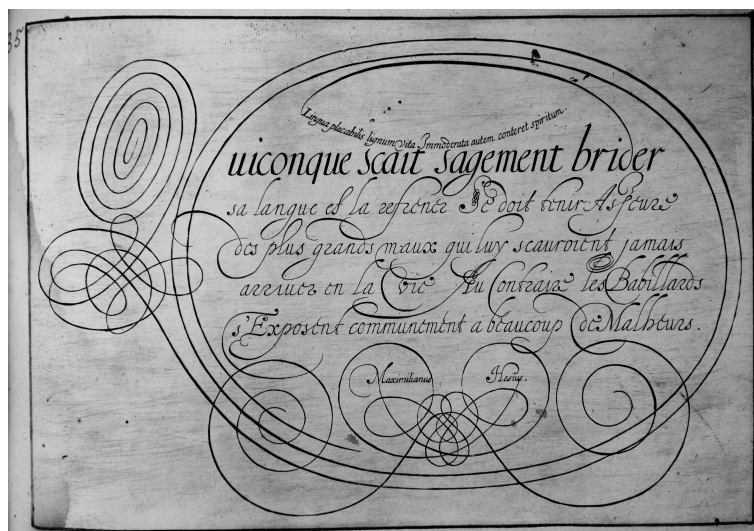 35
Lingua placabilis lignum vitæ Immoderata autem conteret spiritum.
Quiconque scait sagement brider
sa langue et la refrener Se doit tenir Asseure
des plus grands maux qui luy scauroient jamais
arriuer en la Vie Au Contraire les Babillards
s'Exposent communement a beaucoup de Malheurs.
Maximilianus